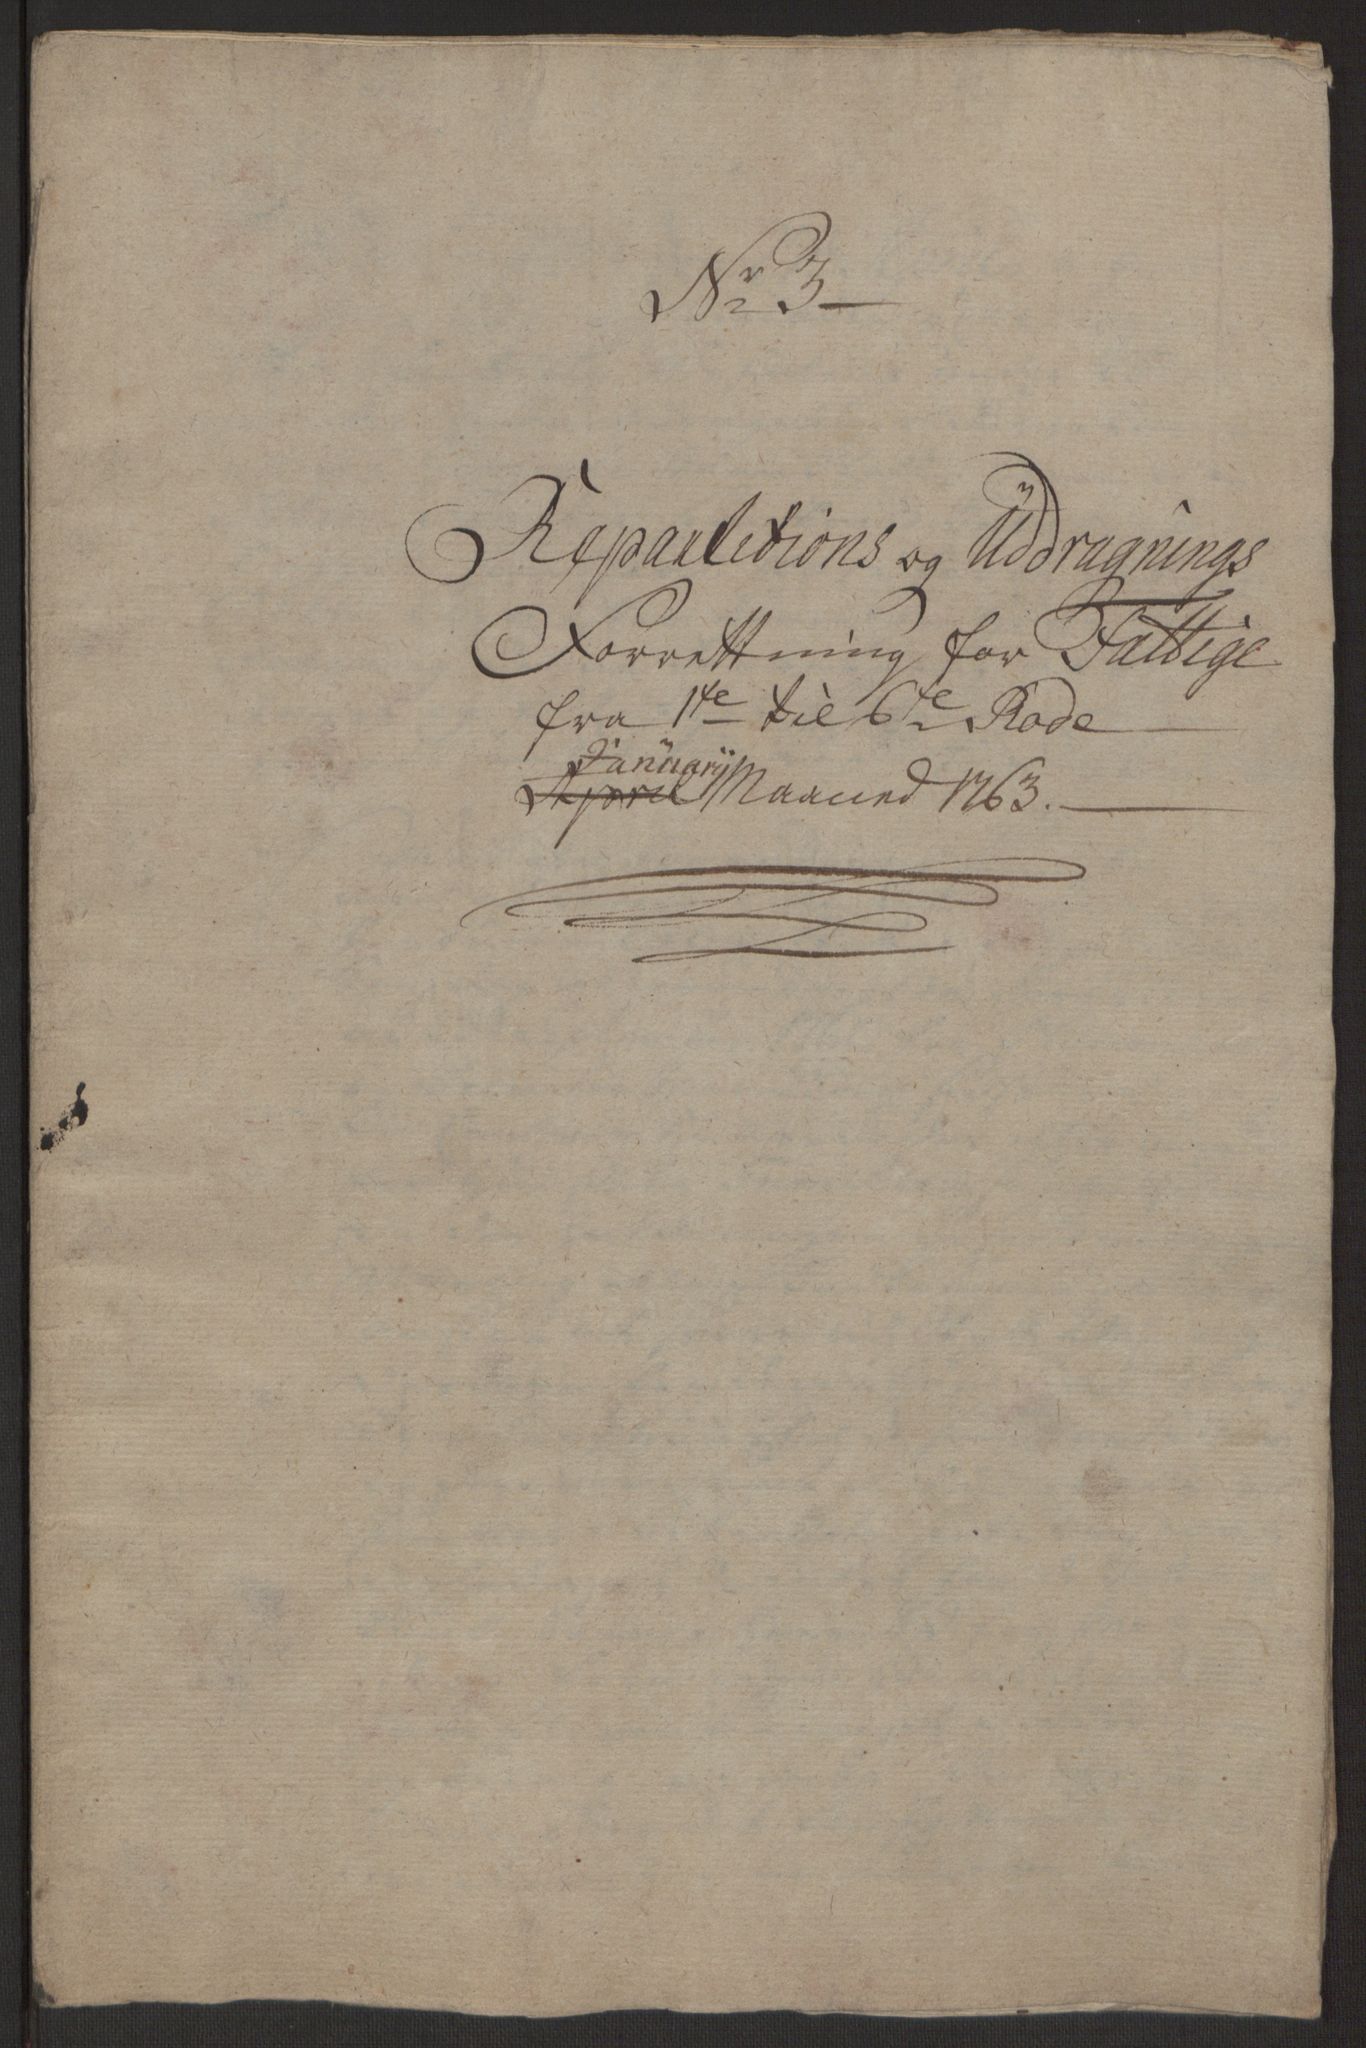 Nr 3
Repartitions og Uddragnings
Forrettning for Fattige
fra 1te til 6te Rode
Januarij
April Maaned 1763.